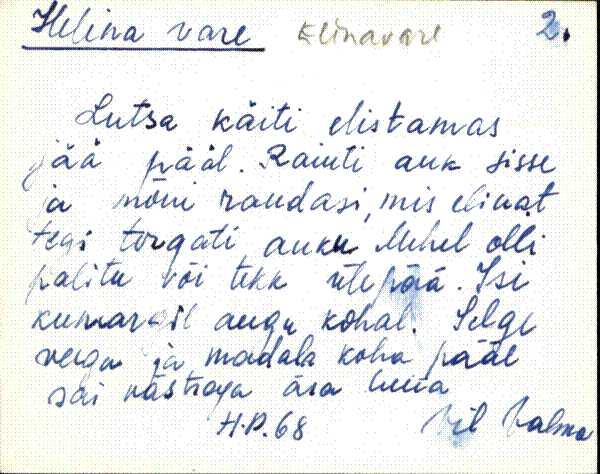 Helina vare Elinavare 2.
Lutsa käiti elistamas
jää pääl. Raiuti auk sisse
ja mõni raudasi, mis elinat
tegi torgati auku. Mehel olli
palitu või tekk üle pää. Isi
kummargil augu kohal. Selge
veega ja madala koha pääl
sai västraga ära lüüa
H.P. 68